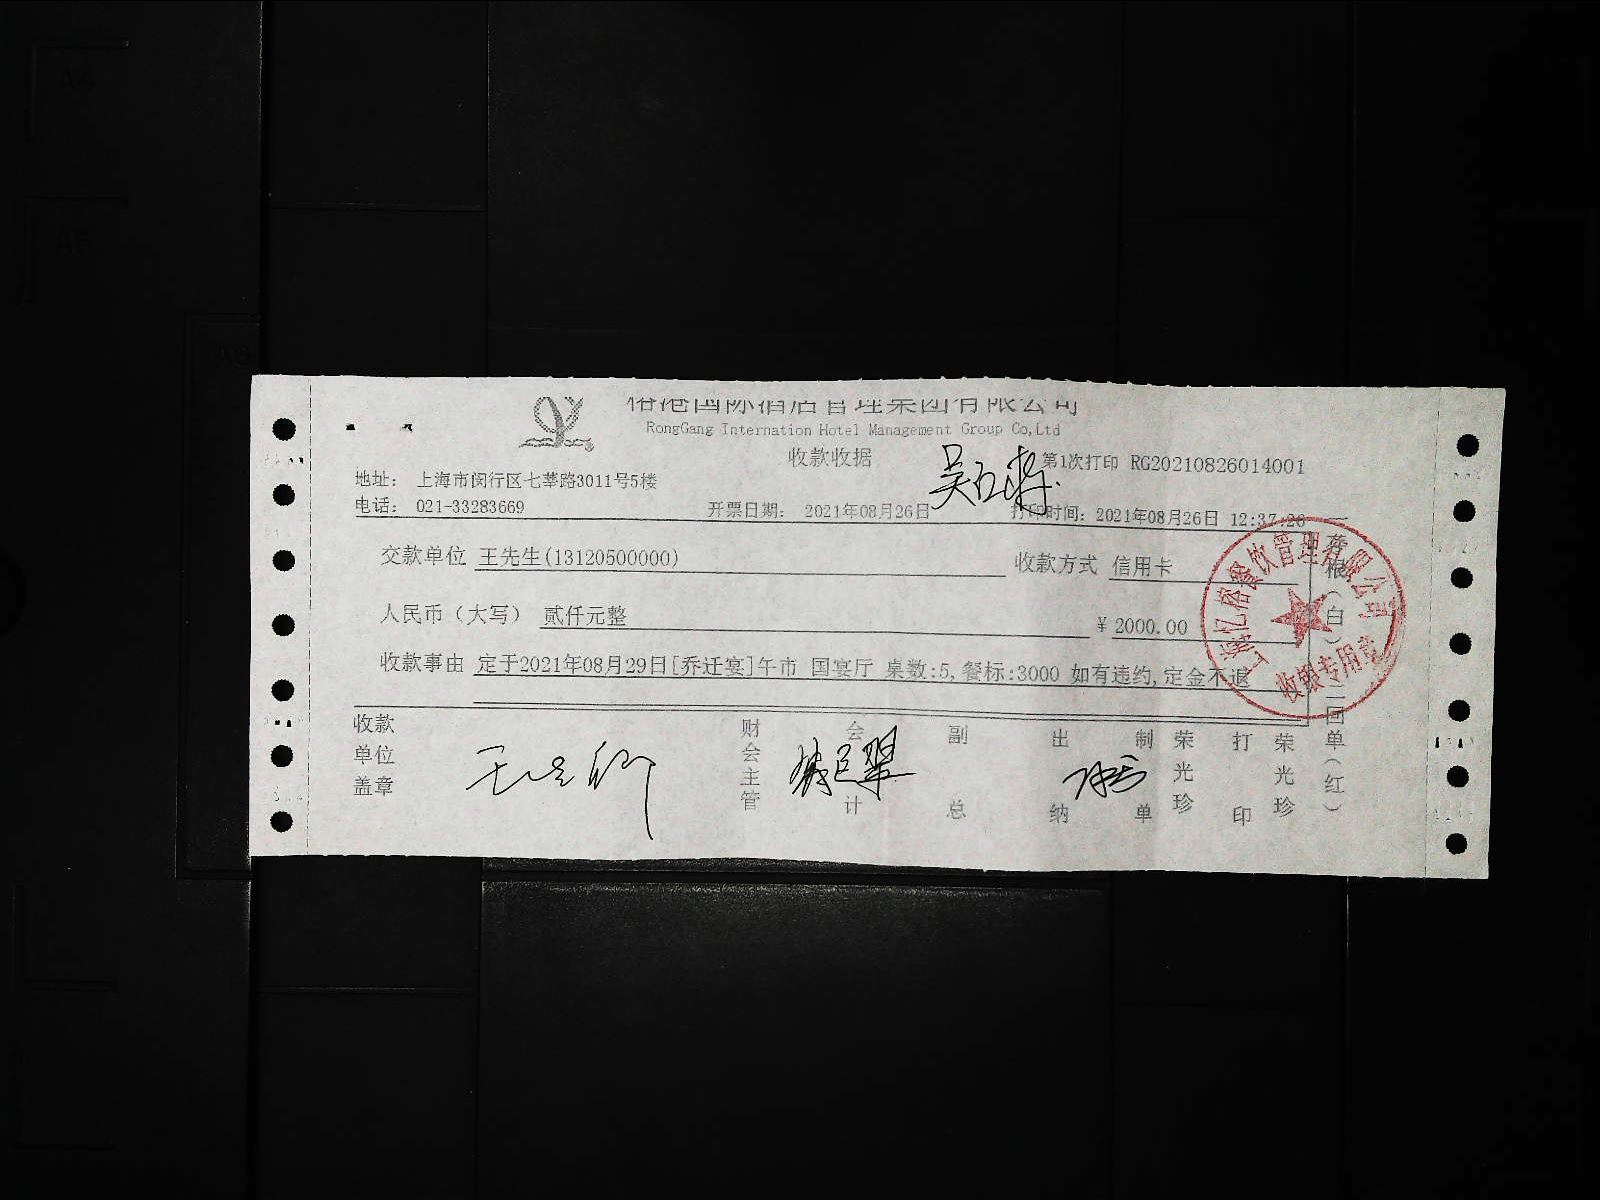 榕港国际酒店管理集团有限公司
RongGang Internation Hotel Management Group Co,Ltd
收款收据
第1次打印 RG20210826014001
地址: 上海市闵行区七莘路3011号5楼
电话: 021-33283669
开票日期: 2021年08月26日
打印时间: 2021年08月26日 12:37:26
交款单位 王先生(13120500000)
收款方式 信用卡
人民币(大写) 贰仟元整
¥ 2000.00
收款事由 定于2021年08月29日[乔迁宴]午市 国宴厅 桌数:5,餐标:3000 如有违约,定金不退
收款单位盖章
财会主管
会计
副总
出纳
制单
荣光珍
打印
荣光珍
一存根(白)二回单(红)
上海亿榕餐饮管理有限公司
收银专用章